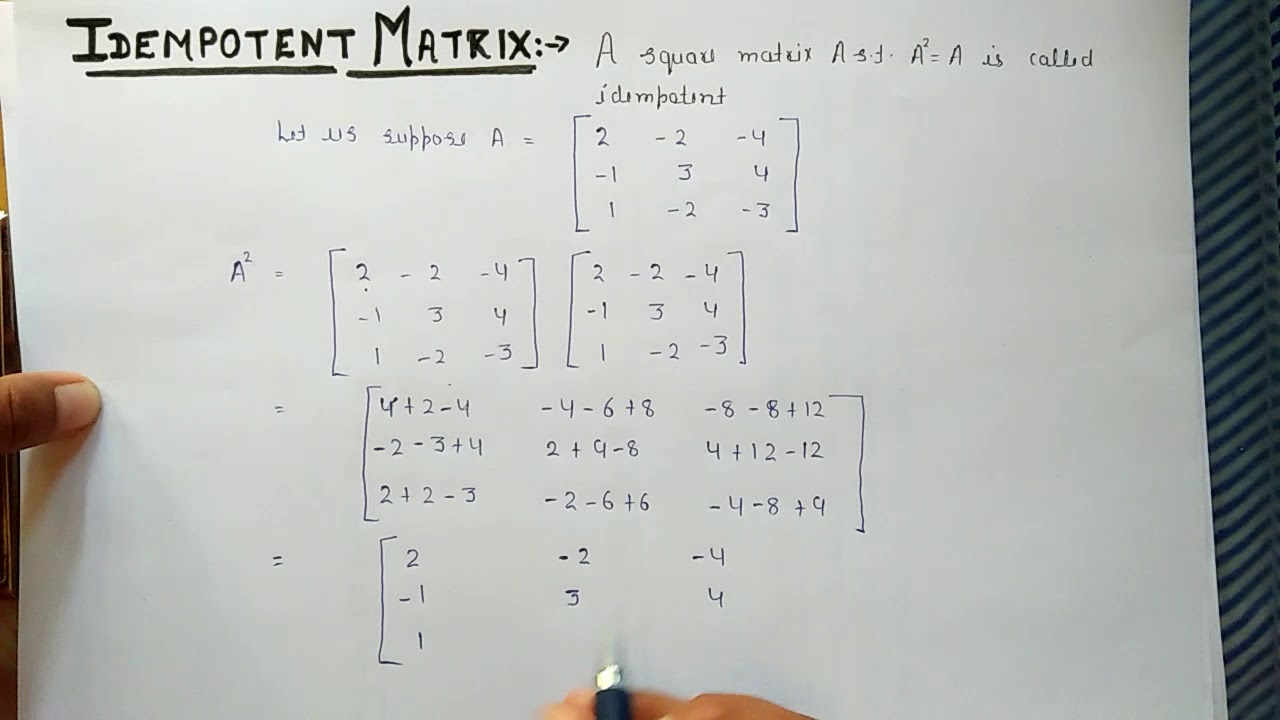 IDEMPOTENT MATRIX:→ A square matrix A s.t. A²=A is called
idempotent
Let us suppose A = [ 2 -2 -4
-1 3 4
1 -2 -3 ]
A² = [ 2 -2 -4 ] [ 2 -2 -4 ]
-1 3 4 -1 3 4
1 -2 -3 1 -2 -3
= [ 4+2-4 -4-6+8 -8-8+12 ]
-2-3+4 2+9-8 4+12-12
2+2-3 -2-6+6 -4-8+9
= [ 2 -2 -4
-1 3 4
1